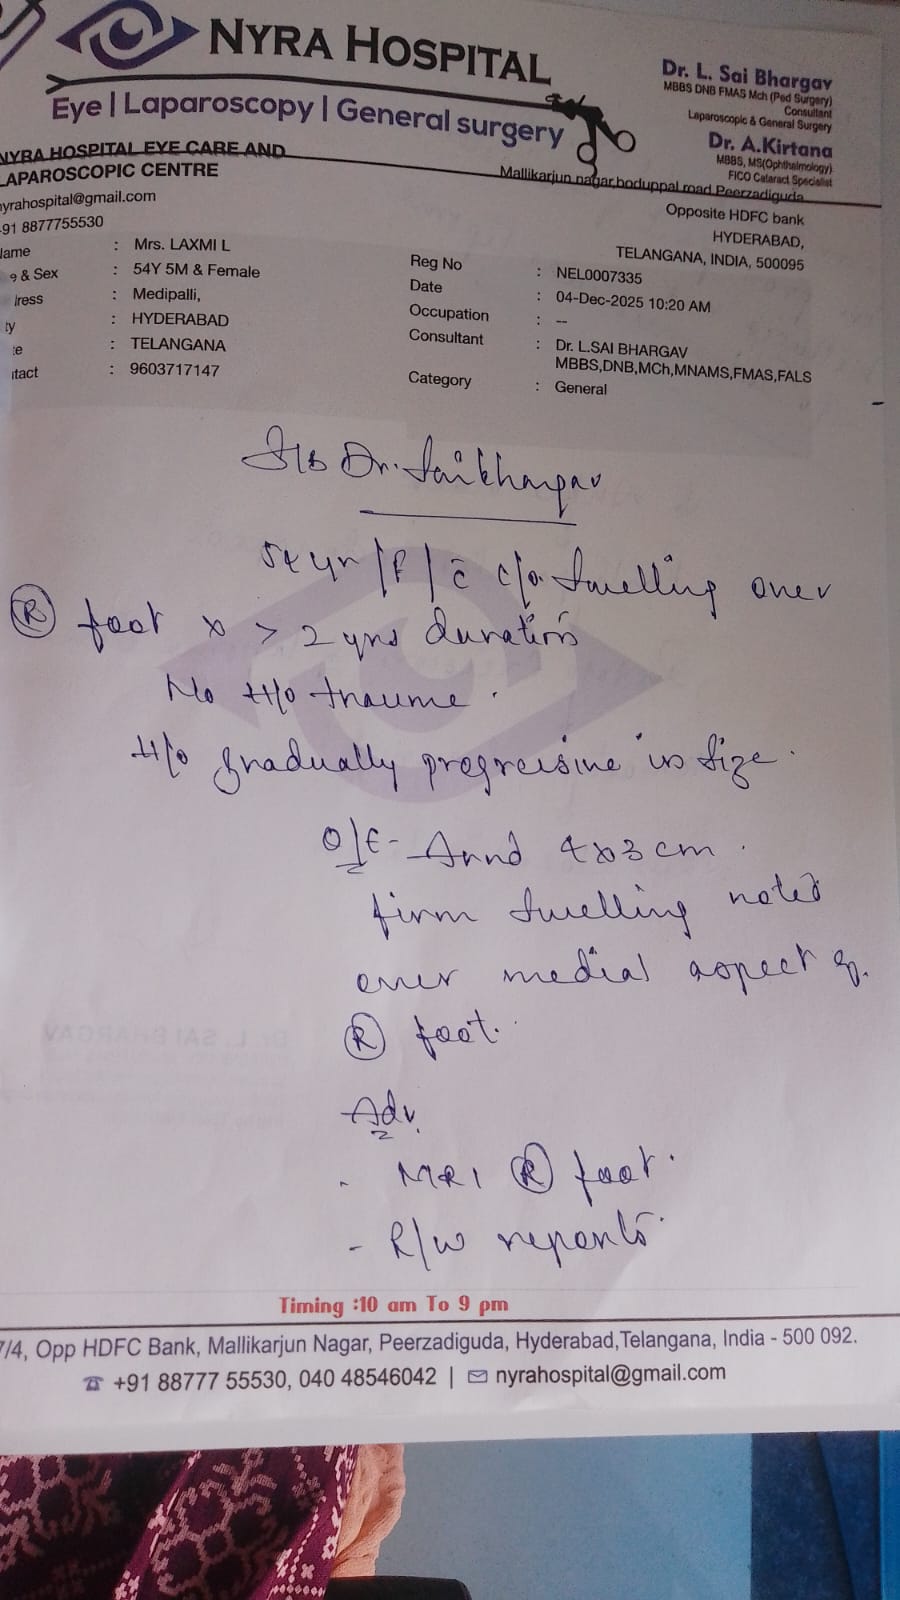 NYRA HOSPITAL
Eye | Laparoscopy | General surgery
Dr. L. Sai Bhargav
MBBS DNB FMAS Mch (Ped Surgery)
Consultant
Laparoscopic & General Surgery
Dr. A.Kirtana
MBBS, MS(Ophthalmology)
FICO Cataract Specialist
NYRA HOSPITAL EYE CARE AND
LAPAROSCOPIC CENTRE
nyrahospital@gmail.com
+91 8877755530
Mallikarjun nagar,boduppal road,Peerzadiguda
Opposite HDFC bank
HYDERABAD,
TELANGANA, INDIA, 500095
Name : Mrs. LAXMI L
e & Sex : 54Y 5M & Female
dress : Medipalli,
ty : HYDERABAD
te : TELANGANA
ntact : 9603717147
Reg No : NEL0007335
Date : 04-Dec-2025 10:20 AM
Occupation : --
Consultant : Dr. L.SAI BHARGAV
MBBS,DNB,MCh,MNAMS,FMAS,FALS
Category : General
S/B Dr. Saibhargav
54 yr/F/ c̄ c/o. Swelling over
(R) foot x > 2 yrs duration
No H/o trauma.
H/o gradually progressive in size.
O/E - 4x3 cm.
firm swelling noted
over medial aspect of.
(R) foot.
Adv.
- MRI (R) foot.
- R/w reports.
Timing :10 am To 9 pm
7/4, Opp HDFC Bank, Mallikarjun Nagar, Peerzadiguda, Hyderabad,Telangana, India - 500 092.
+91 88777 55530, 040 48546042 | nyrahospital@gmail.com